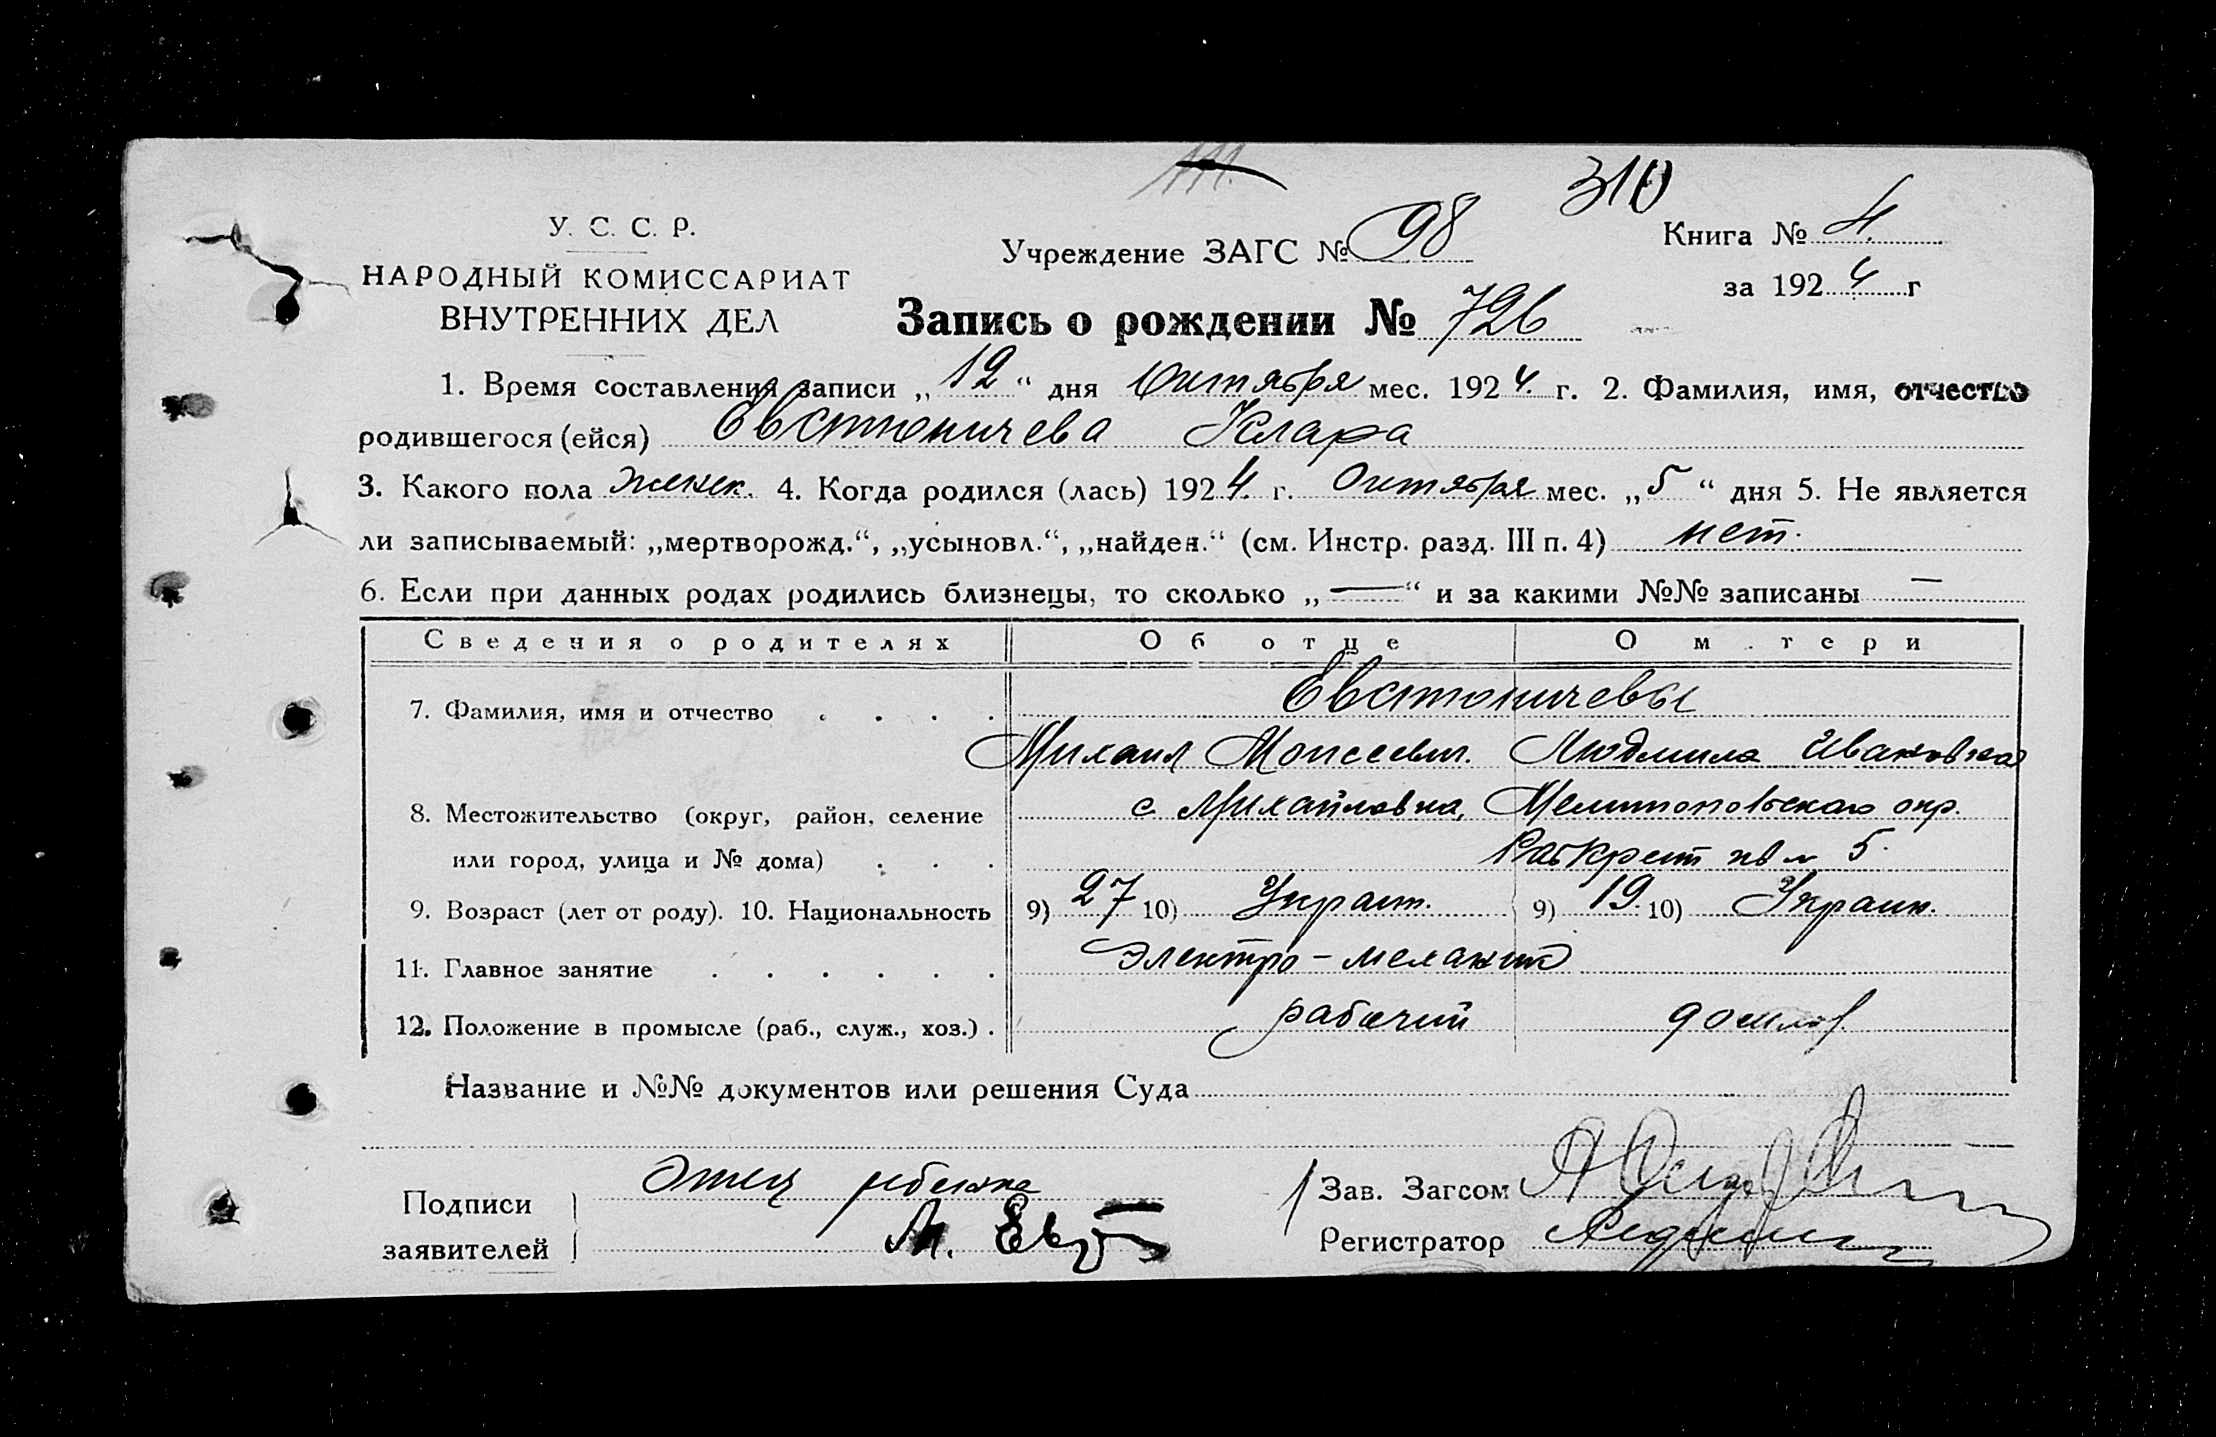 310
У. С. С. Р.
НАРОДНЫЙ КОМИССАРИАТ
ВНУТРЕННИХ ДЕЛ
Учреждение ЗАГС № 98
Книга № 4.
за 1924 г
Запись о рождении № 726
1. Время составления записи „12“ дня Октября мес. 1924. г. 2. Фамилия, имя, отчество
родившегося (ейся) Евстюничева Клара
3. Какого пола женск. 4. Когда родился (лась) 1924. г. Октября мес. „5“ дня 5. Не является
ли записываемый: „мертворожд.“, „усыновл.“, „найден.“ (см. Инстр. разд. III п. 4) нет.
6. Если при данных родах родились близнецы, то сколько „—“ и за какими №№ записаны —
Сведения о родителях Об отце О м тери
7. Фамилия, имя и отчество . . . . Евстюничевы
Михаил Моисеевич. Людмила Ивановна
8. Местожительство (округ, район, селение с Михайловка, Мелитопольского окр.
или город, улица и № дома) . . . 5.
9. Возраст (лет от роду). 10. Национальность 9) 27 10) Украин. 9) 19 10) Украин.
11. Главное занятие . . . . . . Электро-механик
12. Положение в промысле (раб., служ., хоз.) . рабочий домхоз.
Название и №№ документов или решения Суда
Подписи Отец ребенка
заявителей М.
Зав. Загсом
Регистратор